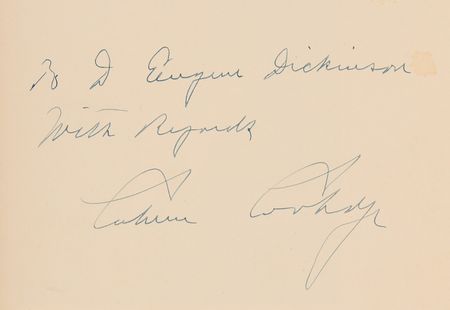 To D Eugene Dickinson
With Regards
Calvin Coolidge